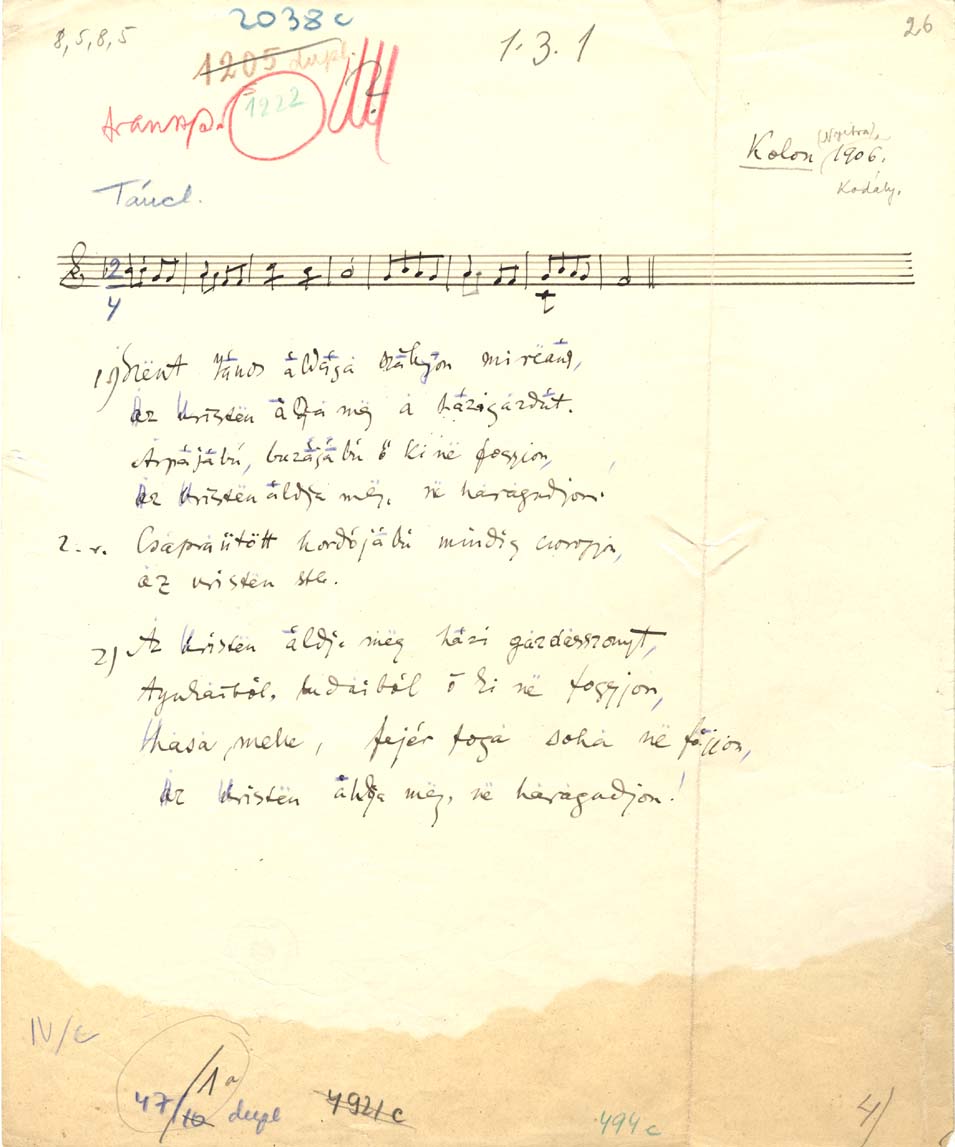 8,5,8,5
2038 c
1·3.1
26
1205 dupl.
transzp. 1222
Kolon (Nyitra), 1906.
Kodály.
Táncl.
2
4
1) Szent János áldása szálljon
Az Uristen áldja még a házigazdát.
Árpájábú, buzájábú ő ki në foggjon,
Az Uristën áldja még, në haragudjon.
2. v. Csapraütött hordójábú mindig csorogjon,
az uristën stb.
2) Az Uristën áldja mëg házi gazdásszonyt,
Tyukaiból, ludaiból ő ki në foggjon,
Hasa, melle, fejér foga soha në fájjon,
Az Uristën áldja még, në haragudjon!
IV/c
1a
47/10 dupl
4921 c
494 c
4/